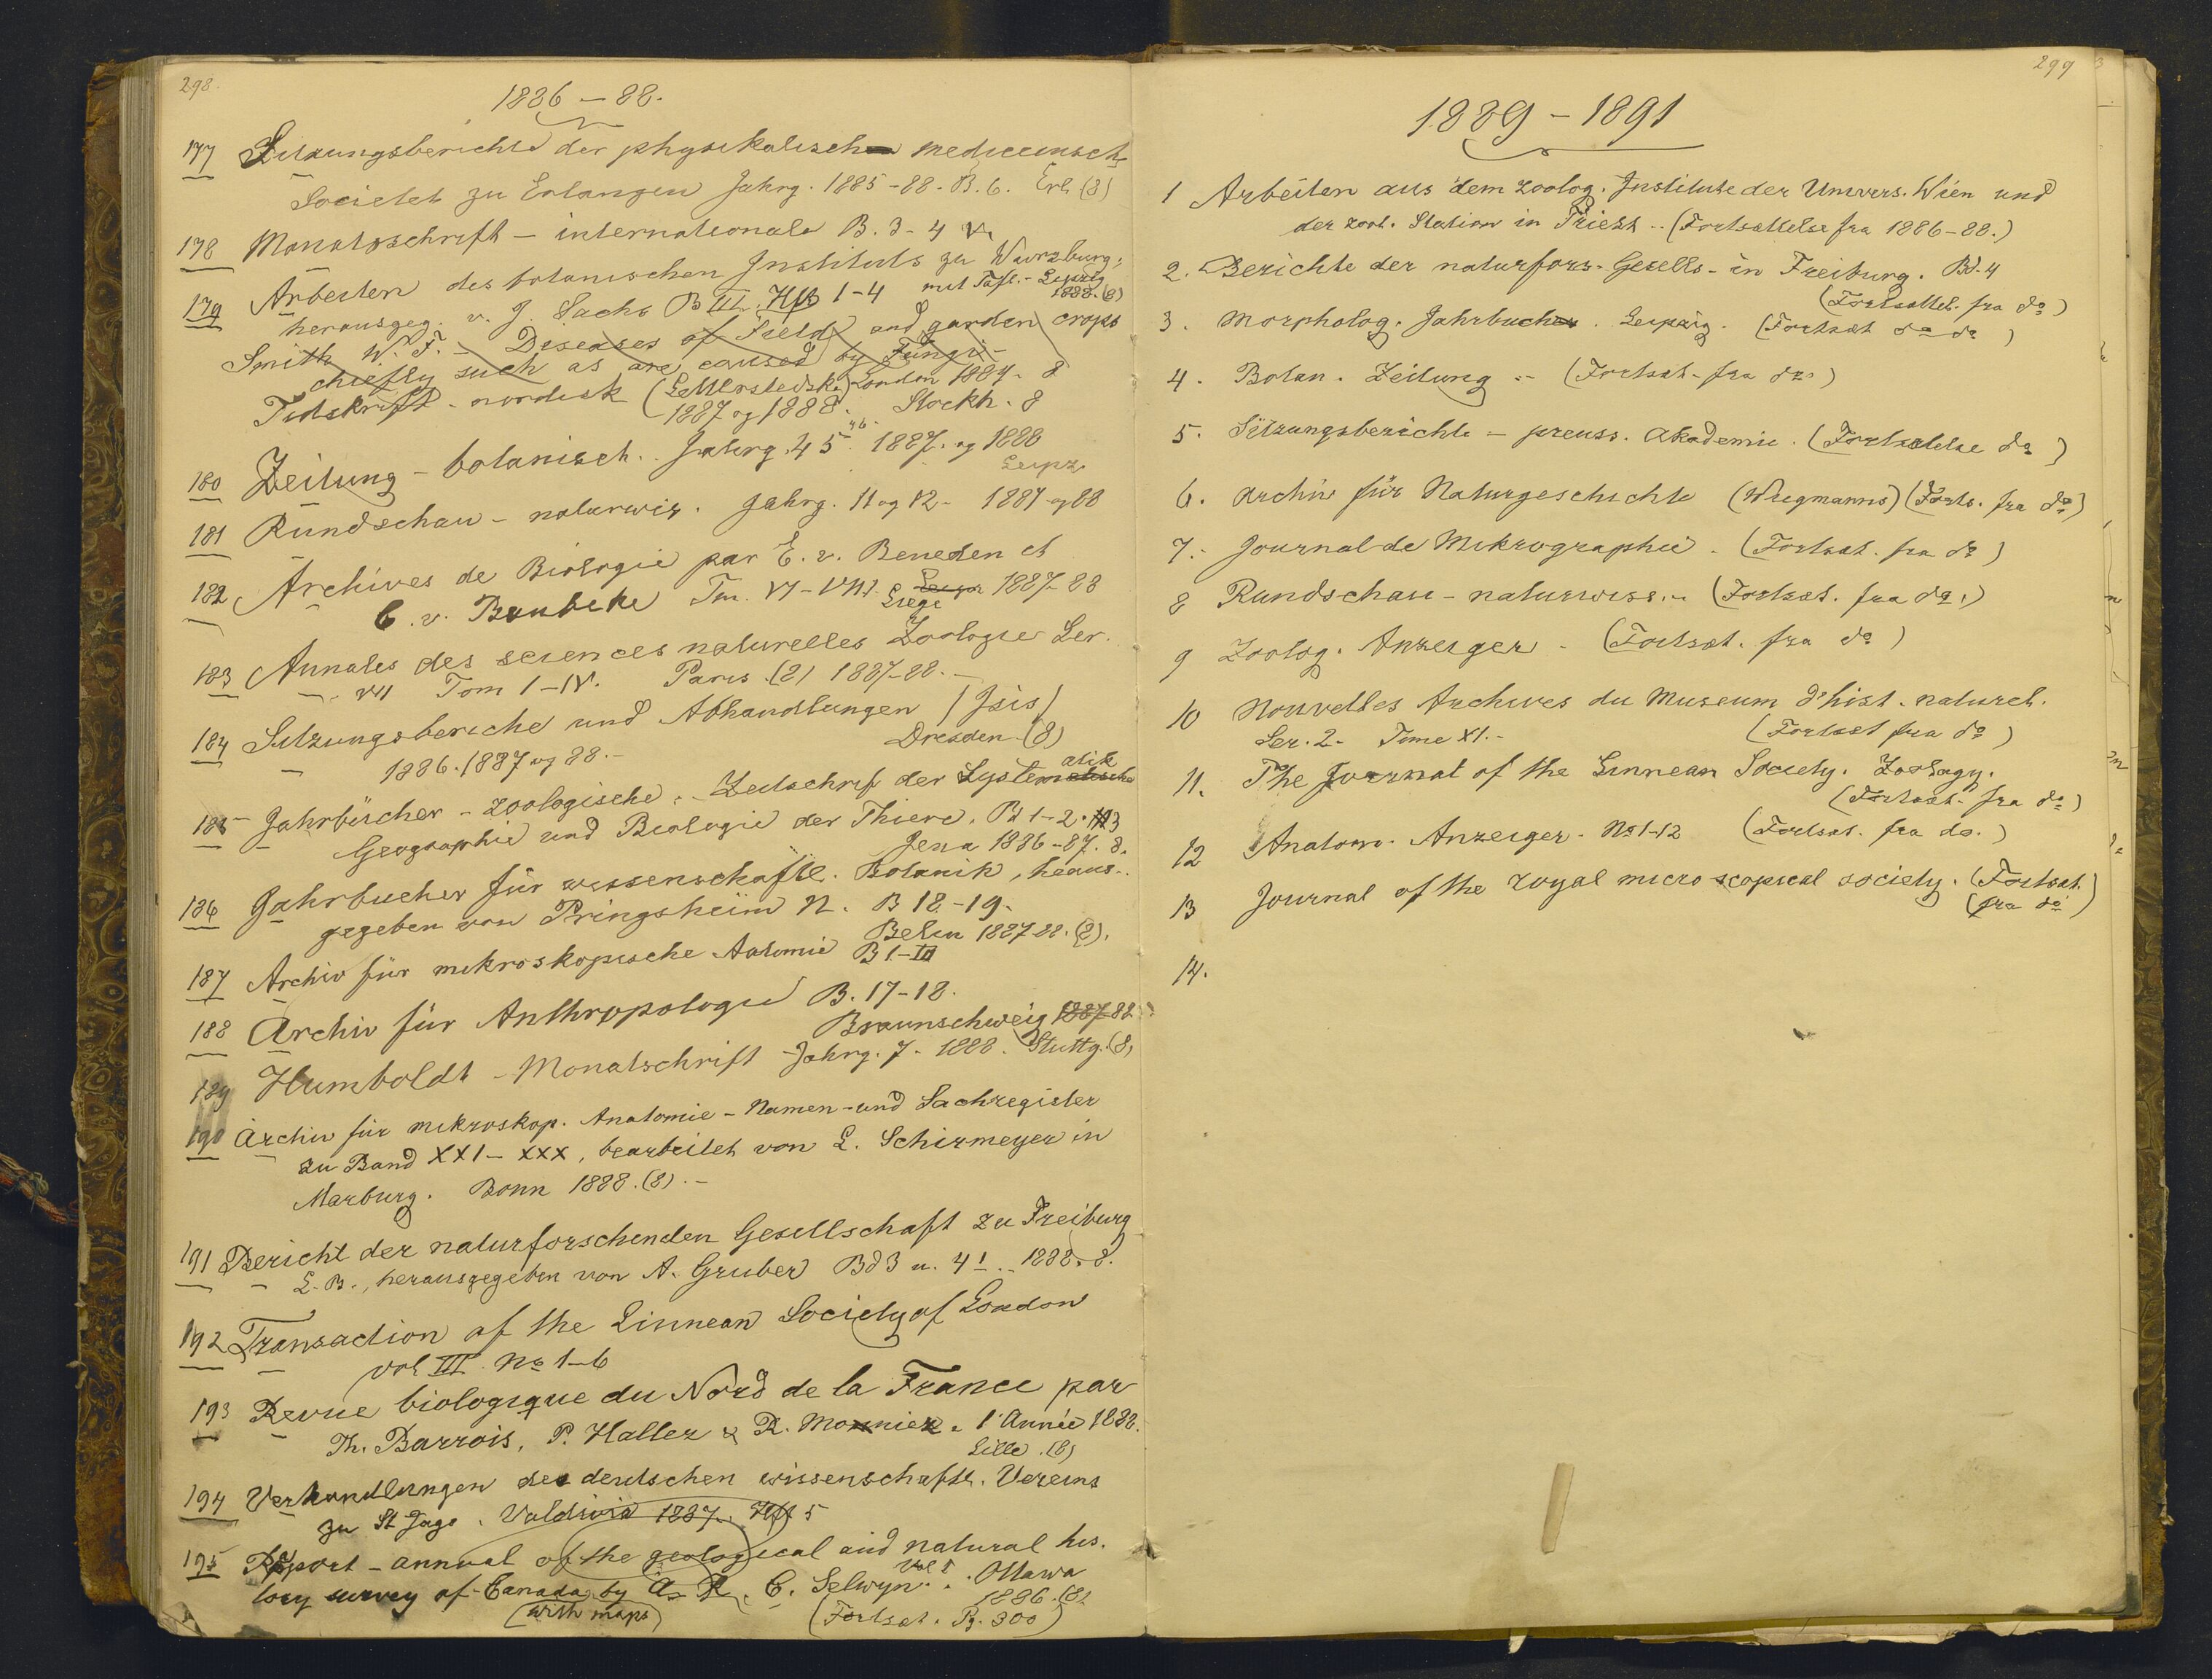 298.
1886 – 88.
177 Sitzungsberichte der physikalisch medicinisch
Societet zu Erlangen Jahrg. 1885-88. B. 6. Erl. (8)
178 Monatsschrift – internationale B. 3-4
179 Arbeiten des botanischen Instituts zu Wurzburg,
herausgeg. v. J. Sachs B III. Hft 1-4 mit Tafl. - Leipzig
1888. (8)
Smith W. F. – Diseases of Field and garden crops
chiefly such as are caused by Fungi –
London 1884. 8
Tidskrift – nordisk (Letterstedske)
1887 og 1888. Stockh. 8
180 Zeitung – botanisch. Jahrg. 45 46. 1887. og 1888
Leipz.
181 Rundschau – naturwis. Jahrg. 11 og 12 – 1887 og 88
182 Archives de Biologie par E. v. Beneden et
C. v. Bambeke Tm. VI-VIII. Liege 1887-88
183 Annales des sciences naturelles Zoologie Ser.
VII Tom 1-IV. Paris. (8) 1887-88. –
184 Sitzungsberiche und Abhandlungen (Isis)
1886. 1887 og 88. – Dresden – (8)
185 Jahrbücher – zoologische. – Zeitschrif der Systematik
Geographie und Biologie der Thiere. Bd 1-2. 3
Jena 1886-87. 8.
186 Jahrbucher für wissenschaftl. Botanik, heraus..
gegeben von Pringsheim N. B 18-19.
Belin 1887-88. (8).
187 Archiv für mikroskopische Aatomie B 1-III
188 Archiv für Anthropologie B. 17-18.
Braunschweig 1887 88
189 Humboldt – Monatschrift – Jahrg. 7. 1888. Stuttg. (8)
190 Archiv für mikroskop. Anatomie – Namen – und Sachregister
zu Band XXI – XXX, bearbeitet von L. Schirmeyer in
Marburg. Bonn 1888. (8). –
191 Bericht der naturforschenden Gesellschaft zu Freiburg
I. B., herausgegeben von A. Gruber Bd 3 u. 4 1. .. 1888. 8.
192 Transaction of the Linnean Society of London
vol III. No 1-6
193 Revue biologique du Nord de la France par
Th. Barrois, P. Hallez & R. Moniez. 1 Année 1888.
Lille. (8)
194 Verhandlungen des deutschen wissenschaftl. Vereins
zu St Jago. Valdivia 1887. Hft 5
195 Report – annual of the geological and natural his.
tory survey of Canada by A. R. C. Selwyn. Vol I. Ottawa
1886. (8)
(with maps) (Fortsat. Pg. 300)
299
1889 – 1891
1 Arbeiten aus dem zoolog. Institute der Univers. Wien und
der zool. Station in Triest .. (Fortsættelse fra 1886-88.)
2. Berichte der naturfors. Gesells – in Freiburg. Bd. 4
(Fortsættel. fra do)
3. Morpholog. Jahrbuch. Leipzig. (Fortsat do do)
4. Botan. Zeitung .– (Fortsat – fra do)
5. Sitzungsberichte – preuss. Akademie. (Fortsættelse do)
6. Archiv für Naturgeschichte (Wiegmanns) (Forts. fra do)
7. Journal de Mikrographie. (Fortsat. fra do)
8 Rundschau – naturwiss. – (Fortsat. fra do.)
9 Zoolog. Anzeiger – (Fortsat. fra do)
10 Nouvelles Archives du Museum d'hist. naturel.
Ser. 2. Tome XI. – (Fortsat fra do)
11. The Journal of the Linnean Society. Zoology.
(Fortsat. fra do)
12 Anatom. Anzeiger. No 1-12 (Fortsat. fra do.)
13 Journal of the royal microscopical society. (Fortsat.
fra do)
14.